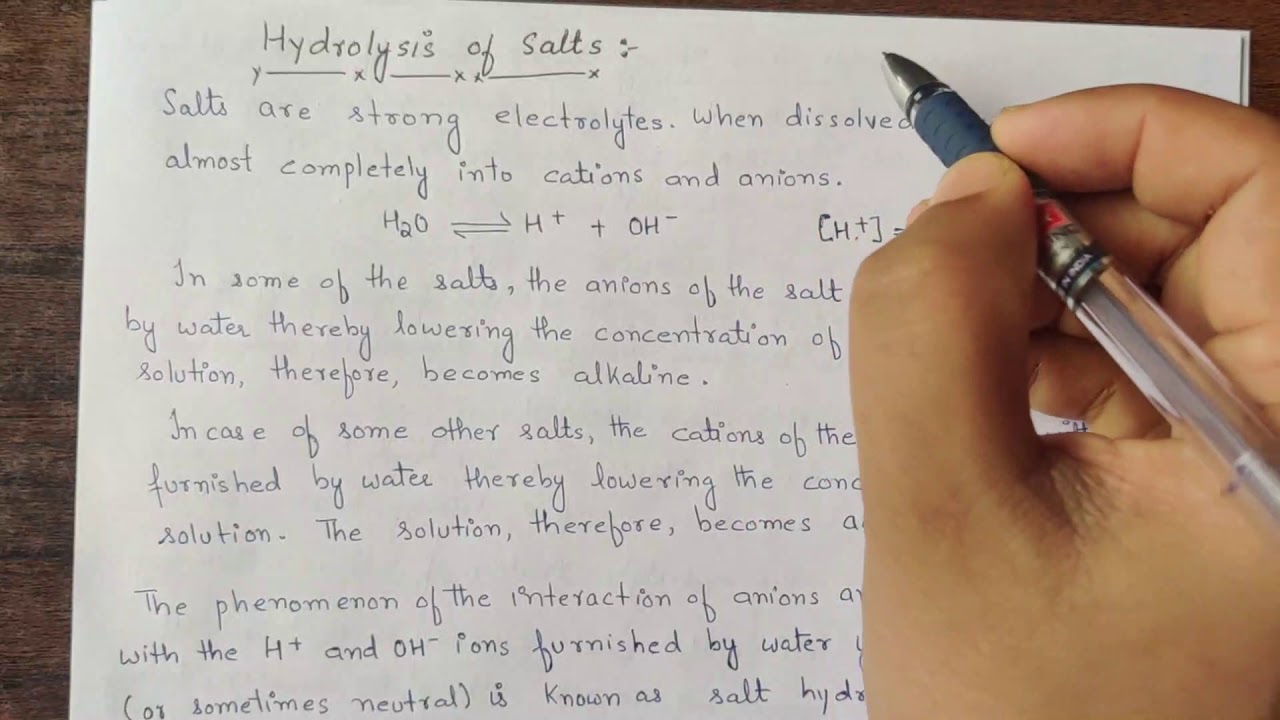 Hydrolysis of Salts :-
Salts are strong electrolytes. When dissolved
almost completely into cations and anions.
H₂O ⇌ H⁺ + OH⁻ [H⁺] =
In some of the salts, the anions of the salt
by water thereby lowering the concentration of
solution, therefore, becomes alkaline.
In case of some other salts, the cations of the
furnished by water thereby lowering the
solution. The solution, therefore, becomes
The phenomenon of the interaction of anions
with the H⁺ and OH⁻ ions furnished by water
(or sometimes neutral) is known as salt